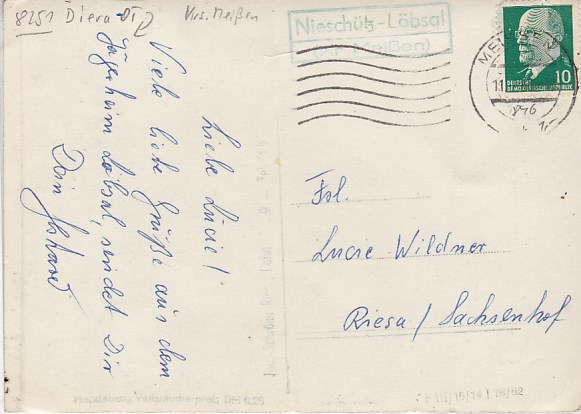 8251 Diera Krs. Meißen
Nieschütz-Löbsal
(Kr. Meißen)
MEISSEN
10
DEUTSCHE
DEMOKRATISCHE REPUBLIK
Liebe Lucie!
Viele liebe Grüße aus dem
Jägerheim Löbsal, sendet Dir
Dein
Frl.
Lucie Wildner
Riesa / Sachsenhof